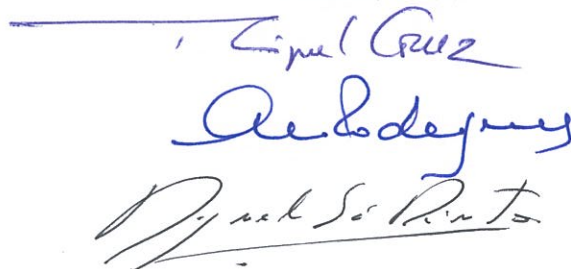 Miguel Cruz
Rodrigues
Miguel Sá Pinto